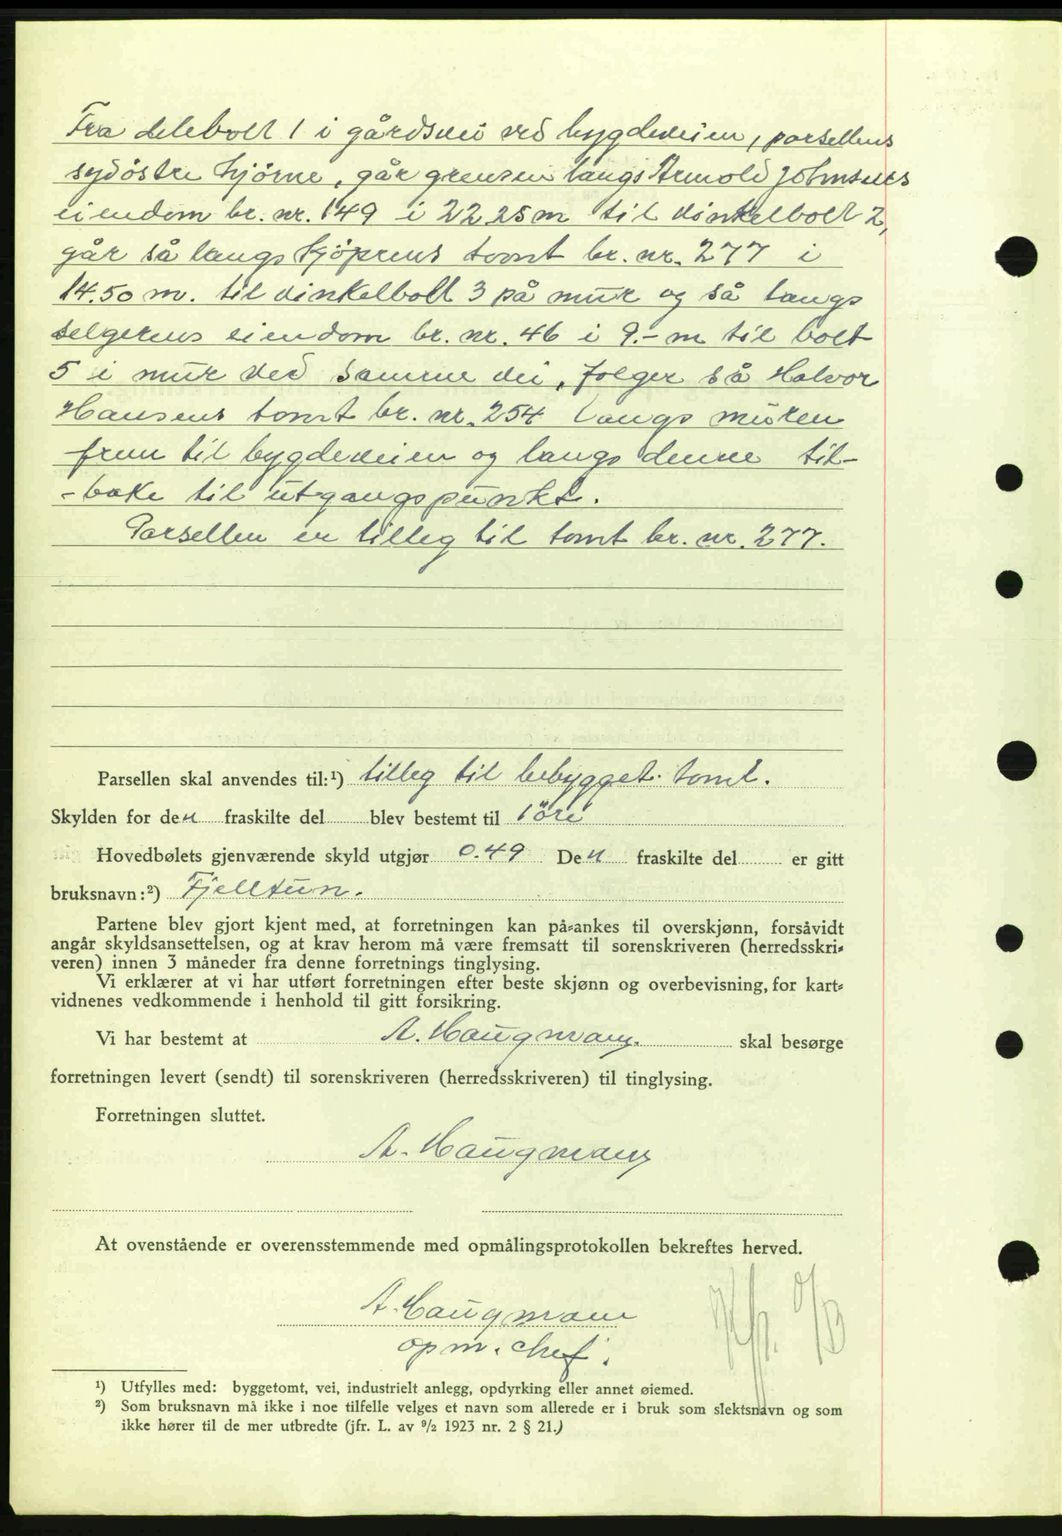 Fra delebolt 1 i gårdsvei ved bygdeveien, parsellens
sydöstre hjörne, går grensen langs Arnold Johnsens
eiendom br. nr. 149 i 22.25 m til vinkelbolt 2,
går så langs kjöperens tomt br. nr. 277 i
14.50 m. til vinkelbolt 3 på mur og så langs
selgerens eiendom br. nr. 46 i 9.- m til bolt
5 i mur ved samme vei, følger så Halvor
Hansens tomt br. nr. 254 langs muren
frem til bygdeveien og langs denne til-
-bake til utgangspunkt.
Parsellen er tilleg til tomt br. nr. 277.
Parsellen skal anvendes til:¹) tilleg til bebygget tomt.
Skylden for den fraskilte del blev bestemt til 1 öre
Hovedbølets gjenværende skyld utgjør 0.49 Den fraskilte del er gitt
bruksnavn:²) Fjelltun.
Partene blev gjort kjent med, at forretningen kan på-ankes til overskjønn, forsåvidt
angår skyldsansettelsen, og at krav herom må være fremsatt til sorenskriveren (herredsskri-
veren) innen 3 måneder fra denne forretnings tinglysing.
Vi erklærer at vi har utført forretningen efter beste skjønn og overbevisning, for kart-
vidnenes vedkommende i henhold til gitt forsikring.
Vi har bestemt at A. Haugmann. skal besørge
forretningen levert (sendt) til sorenskriveren (herredsskriveren) til tinglysing.
Forretningen sluttet.
A. Haugmann
At ovenstående er overensstemmende med opmålingsprotokollen bekreftes herved.
A. Haugmann
opm. chef.
¹) Utfylles med: byggetomt, vei, industrielt anlegg, opdyrking eller annet øiemed.
²) Som bruksnavn må ikke i noe tilfelle velges et navn som allerede er i bruk som slektsnavn og som
ikke hører til de mer utbredte (jfr. L. av ⁹/₂ 1923 nr. 2 § 21.)